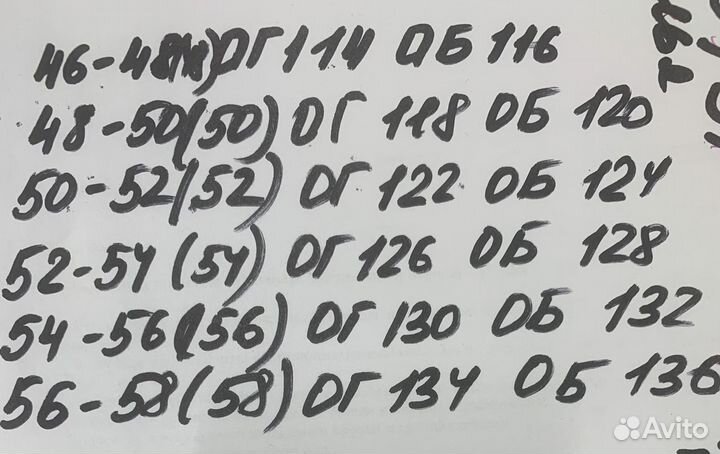 46-48 ОГ 114 ОБ 116
48-50(50) ОГ 118 ОБ 120
50-52(52) ОГ 122 ОБ 124
52-54 (54) ОГ 126 ОБ 128
54-56(56) ОГ 130 ОБ 132
56-58(58) ОГ 134 ОБ 136
Avito